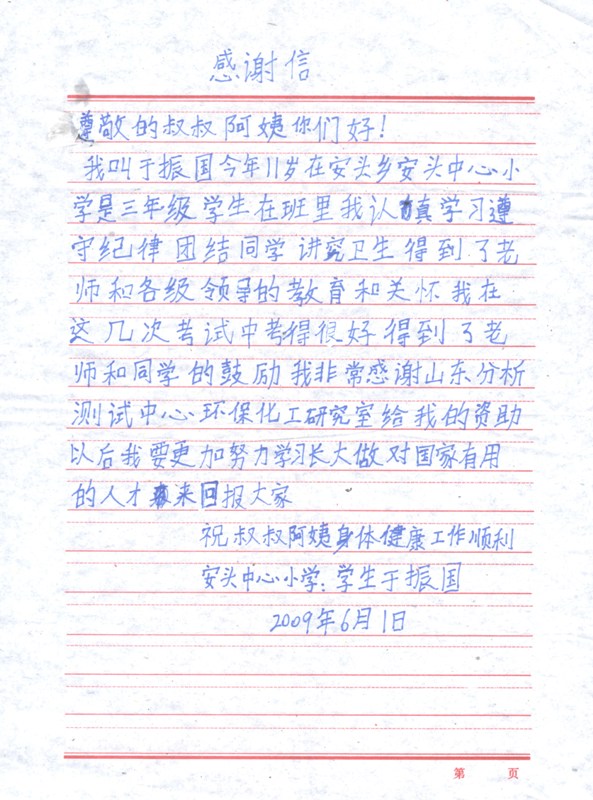 感谢信
尊敬的叔叔阿姨你们好！
我叫于振国今年11岁在安头乡安头中心小
学是三年级学生在班里我认真学习遵
守纪律团结同学讲究卫生得到了老
师和各级领导的教育和关怀我在
这几次考试中考得很好得到了老
师和同学的鼓励我非常感谢山东分析
测试中心环保化工研究室给我的资助
以后我要更加努力学习长大做对国家有用
的人才来回报大家
祝叔叔阿姨身体健康工作顺利
安头中心小学：学生于振国
2009年6月1日
第 页